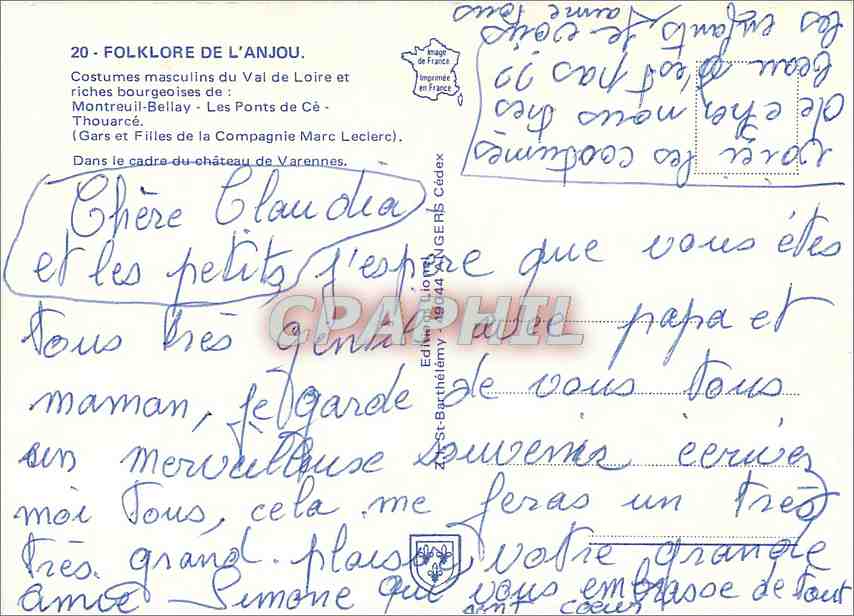 20 - FOLKLORE DE L'ANJOU.
Costumes masculins du Val de Loire et
riches bourgeoises de :
Montreuil-Bellay - Les Ponts de Cé -
Thouarcé.
(Gars et Filles de la Compagnie Marc Leclerc).
Dans le cadre du château de Varennes.
Image
de France
Imprimée
en France
Editions Lionel
Z.I. St-Barthélémy - 49044 ANGERS Cédex
CPAPHIL
Chère Claudia
et les petits, j'espire que vous étes
tous très gentil avec papa et
maman, je garde de vous tous
un merveilleuse souvenir ecrivez
moi tous, cela me feras un très
très. grand. plaisir, votre grande
amie Simone que vous embrasse de tout
sont coeur
voici les costumes
de chez nous très
beau n'est pas ??
les enfants, je vous aime tous